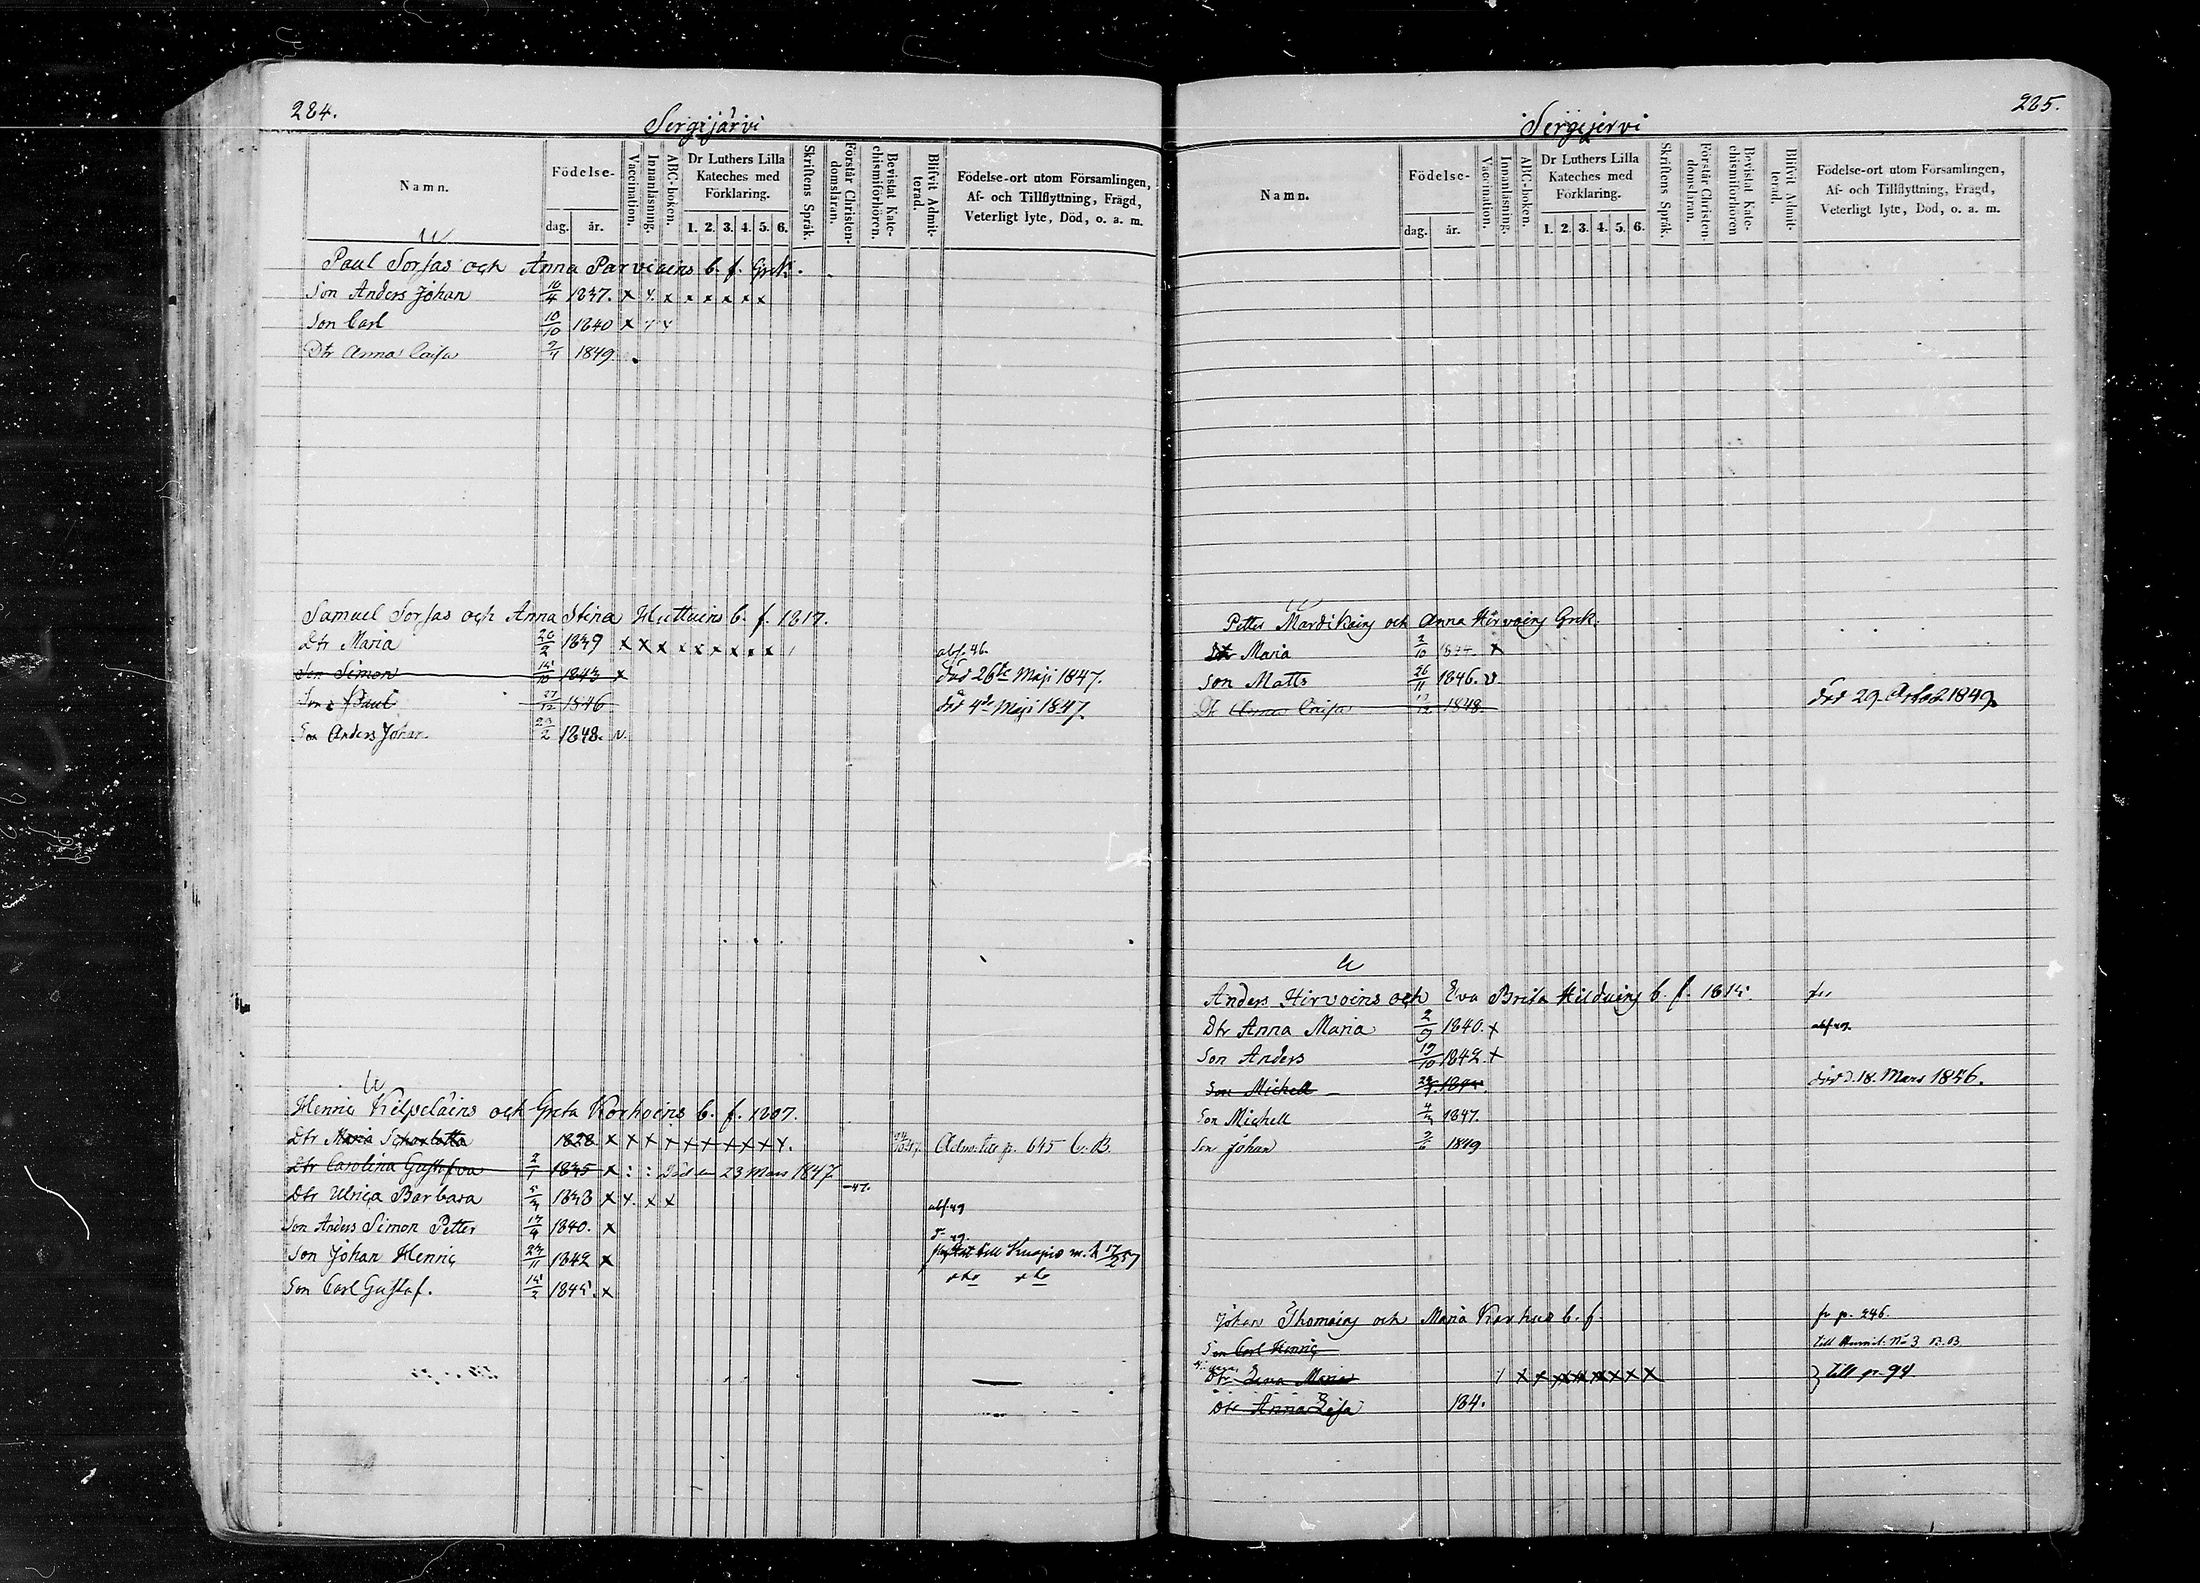 284.
Sergijärvi
Namn.
Födelse-
dag. år.
Vaccination.
Innanläsning.
ABC-boken.
Dr Luthers Lilla Kateches med Förklaring.
1. 2. 3. 4. 5. 6.
Skriftens Språk.
Förstår Christendomsläran.
Bevistat Katechismiförhören.
Blifvit Admitterad.
Födelse-ort utom Församlingen,
Af- och Tillflyttning, Frägd,
Veterligt lyte, Död, o. a. m.
Paul Torfas och Anna Parviains b. f. Grek.
Son Anders Johan 10/4 1837. x x. x x x x x x
Son Carl 10/10 1840 x
Dtr Anna Caisa 1849.
Samuel Torfas och Anna Stina Huttuins b. f. 1817.
Dtr Maria 1839 x x x x x x x x x abs. 46.
Son Simon 15/10 1843 x död 26te Maji 1847.
Son Paul 1846 död 4de Maji 1847.
Son Anders Johan 1848.
Henric Kilpeläins och Greta Korhoins b. f. 1807.
Dtr Maria Scharlotta 1828 x x x x x x x x x x. p. 645 C. B.
Dtr Carolina Gustafva 1835 x : : Död en 23 Mars 1847
Dtr Ulrica Barbara 1838 x x. x x -47. abs. 49
Son Anders Simon Petter 17/4 1840. x
Son Johan Henric 1842 x till
Son Carl Gustaf. 15/2 1845. x
285.
Sergejervi
Namn.
Födelse-
dag. år.
Vaccination.
Innanläsning.
ABC-boken.
Dr Luthers Lilla Kateches med Förklaring.
1. 2. 3. 4. 5. 6.
Skriftens Språk.
Förstår Christendomsläran.
Bevistat Katechismiförhören
Blifvit Admitterad.
Födelse-ort utom Församlingen,
Af- och Tillflyttning, Frägd,
Veterligt lyte, Död, o. a. m.
Petter Mardikains och Anna Hirvoins Grek.
Dtr Maria 2/10 1844. x
Son Matts 26/11 1846. v
Dtr Anna Caisa 1848. död 29 1849.
Anders Hirvoins och Eva Brita b. f. 1815.
Dtr Anna Maria 2/9 1840. x abs. 49.
Son Anders 19/10 1842. x
Son Michell död d. 18. Mars 1846.
Son Michell 1847.
Son Johan 1849
Johan Thomoins och Maria Karhus b. f. fr p. 246.
Son Carl Henric till No 3
Dtr Eeva Maria x x x x x x x x } till p. 94
Dtr Anna Lisa 184.